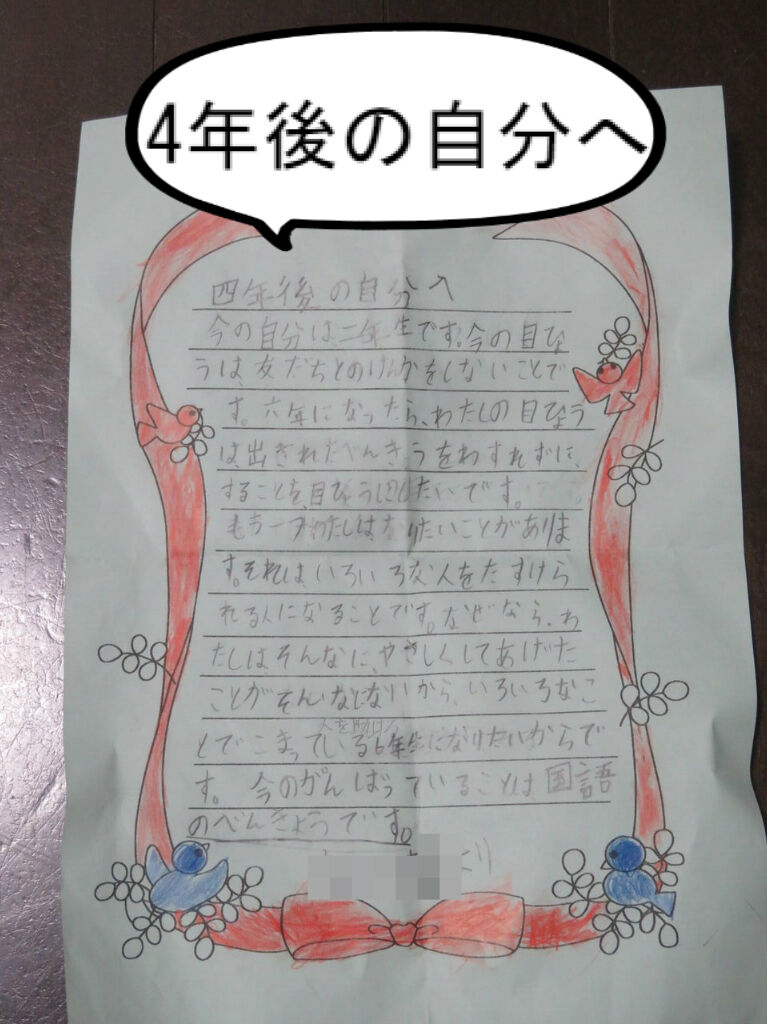 4年後の自分へ
四年後の自分へ
今の自分は二年生です。今の目ひょ
うは、友だちとのけんかをしないことで
す。六年になったら、わたしの目ひょう
は、出きれ
うをわすれずに、
することを、目ひょうにしたいです。
もう一つわたしは、なりたいことがありま
す。それは、いろいろな人をたすけら
れる人になることです。なぜなら、わ
たしは、そんなに、やさしくしてあげた
ことがそんなにないから、いろいろなこ
とでこまっている
人を助ける
6年生になりたいからで
す。今のがんばっていることは、国語
のべんきょうです。
より